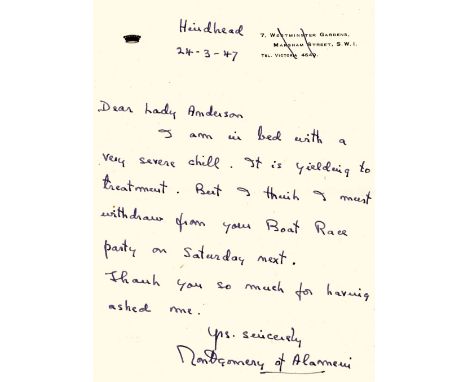 Hindhead
24-3-47
7, Westminster Gardens,
Marsham Street, S.W.1.
Tel. Victoria 4640.
Dear Lady Anderson
I am in bed with a
very severe chill. It is yielding to
treatment. But I think I must
withdraw from your Boat Race
party on Saturday next.
Thank you so much for having
asked me.
Yrs. sincerely
Montgomery of Alamein